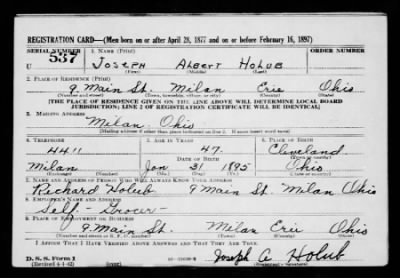 REGISTRATION CARD—(Men born on or after April 28, 1877 and on or before February 16, 1897)
SERIAL NUMBER 1. NAME (Print) ORDER NUMBER
U 537 JOSEPH ALBERT HOLUB
(First) (Middle) (Last)
2. PLACE OF RESIDENCE (Print)
9 Main St. Milan Erie Ohio
(Number and street) (Town, township, village, or city) (County) (State)
[THE PLACE OF RESIDENCE GIVEN ON THE LINE ABOVE WILL DETERMINE LOCAL BOARD
JURISDICTION; LINE 2 OF REGISTRATION CERTIFICATE WILL BE IDENTICAL]
3. MAILING ADDRESS
Milan Ohio
[Mailing address if other than place indicated on line 2. If same insert word same]
4. TELEPHONE 5. AGE IN YEARS 6. PLACE OF BIRTH
4411 47 Cleveland
DATE OF BIRTH (Town or county)
Milan Jan 31 1895 Ohio
(Exchange) (Number) (Mo.) (Day) (Yr.) (State or country)
7. NAME AND ADDRESS OF PERSON WHO WILL ALWAYS KNOW YOUR ADDRESS
Richard Holub 9 Main St. Milan Ohio
8. EMPLOYER'S NAME AND ADDRESS
Self - Grocer -
9. PLACE OF EMPLOYMENT OR BUSINESS
9 Main St. Milan Erie Ohio
(Number and street or R. F. D. number) (Town) (County) (State)
I AFFIRM THAT I HAVE VERIFIED ABOVE ANSWERS AND THAT THEY ARE TRUE.
D. S. S. Form 1 Joseph A Holub
(Revised 4-1-42) (over) (Registrant's signature)